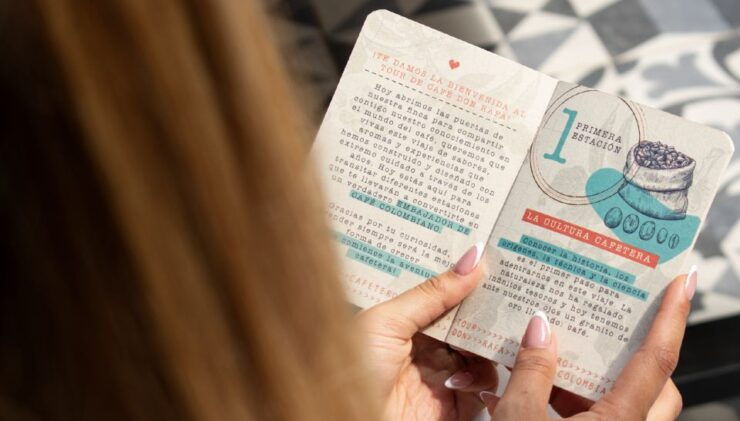 ¡TE DAMOS LA BIENVENIDA AL
TOUR DE CAFÉ DON RAFA!
Hoy abrimos las puertas de
nuestra finca para compartir
contigo nuestro conociemiento en
el mundo del café, queremos que
vivas este viaje de sabores,
aromas y experiencias que
hemos construido y diseñado con
extremo cuidado a través de los
años. Hoy estás aquí para
transitar diferentes estaciones
que te llevarán a convertirte en
un verdadero EMBAJADOR DE
CAFÉ COLOMBIANO.
Gracias por tu curiosidad,
siempre será la
forma de crecer
comience la
cafetera!
CAFETERO
1 PRIMERA
ESTACIÓN
LA CULTURA CAFETERA
Conocer la historia, los
orígenes, la técnica y la ciencia
es el primer paso para
adentrarnos en este viaje. La
naturaleza nos ha regalado
infinitos tesoros y hoy tenemos
ante nuestros ojos un granito de
oro café.
TOUR
DON RAFA
COLOMBIA